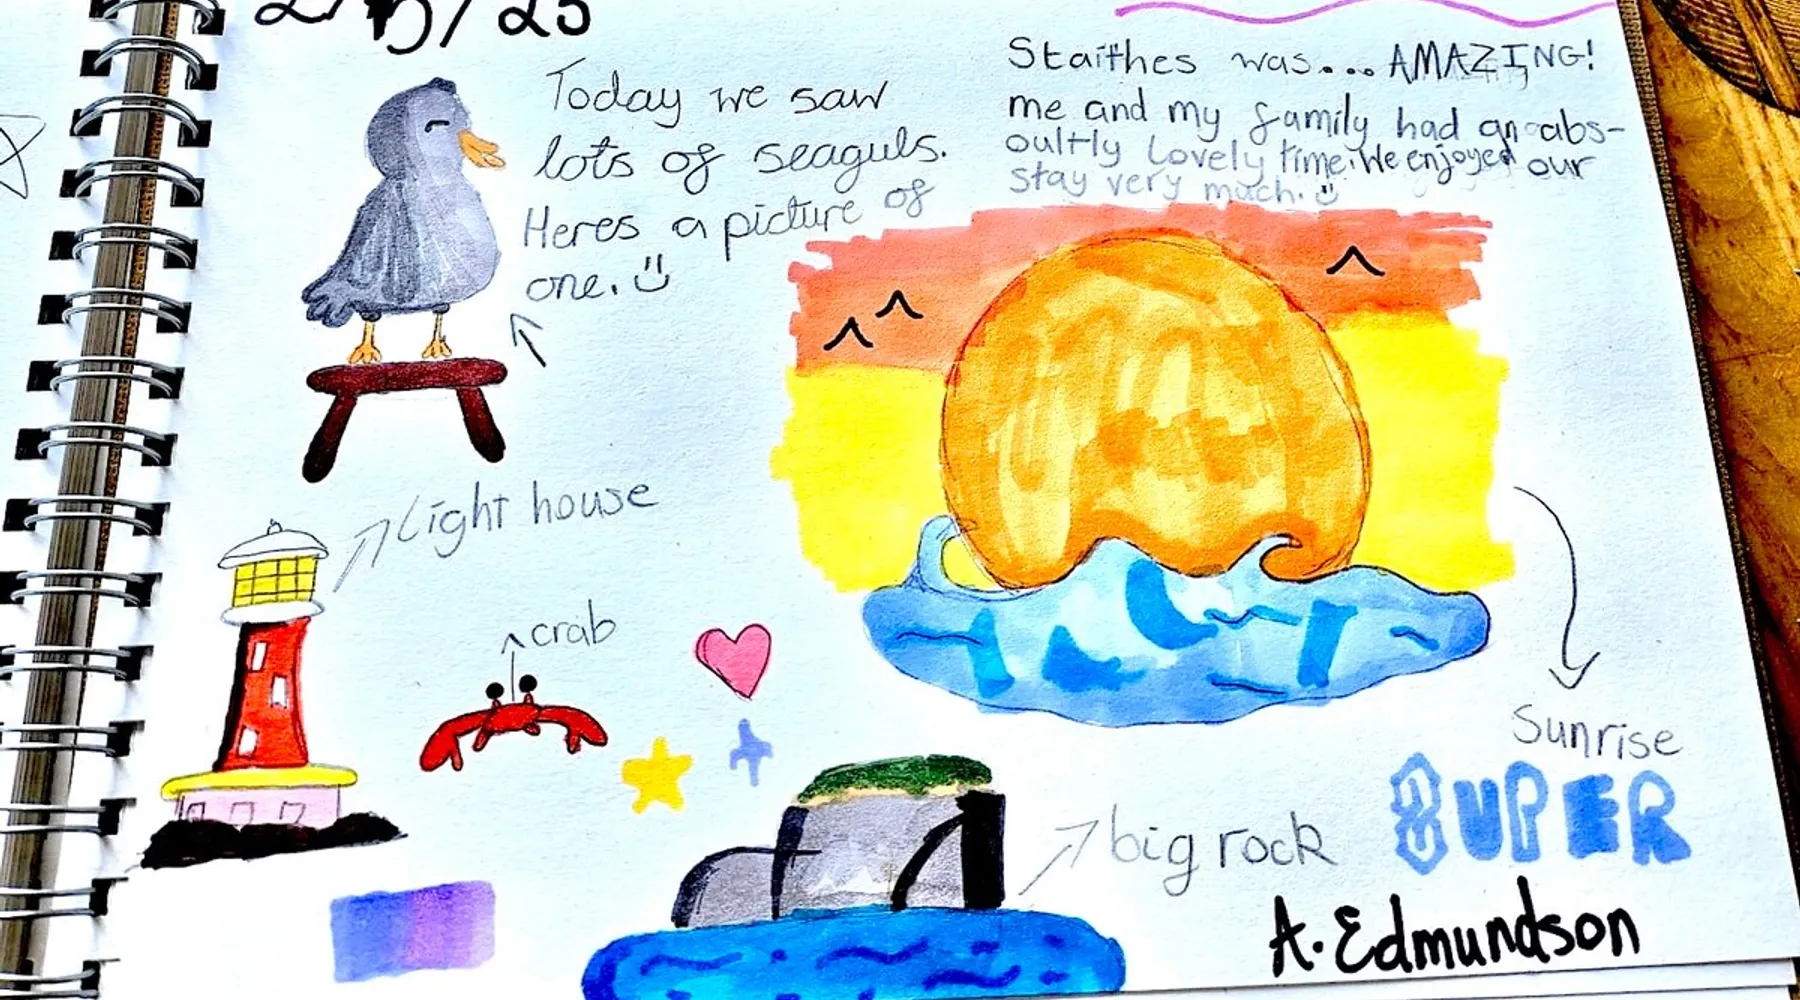 Today we saw
lots of seaguls.
Heres a picture of
one. ü
Staithes was... AMAZING!
me and my family had an abs-
oultly lovely time. We enjoyed our
stay very much. ü
light house
crab
Sunrise
SUPER
big rock
A. Edmundson